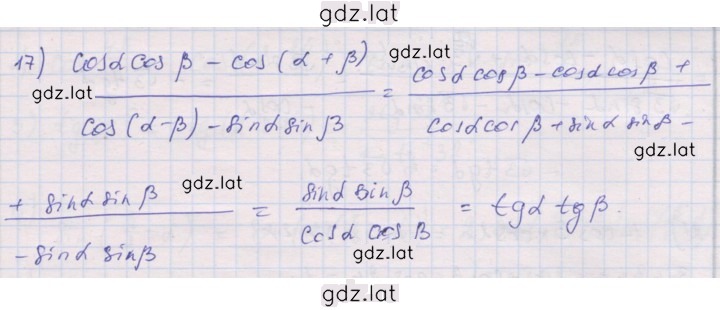 gdz.lat
17) cosα cos β − cos (α + β) / cos (α−β) − sinα sin β = cosα cos β − cosα cos β + / cosα cos β + sin α sin β −
gdz.lat
gdz.lat
gdz.lat
+ sinα sin β / − sinα sin β = sinα sin β / cosα cos β = tgα tg β.
gdz.lat
gdz.lat
gdz.lat